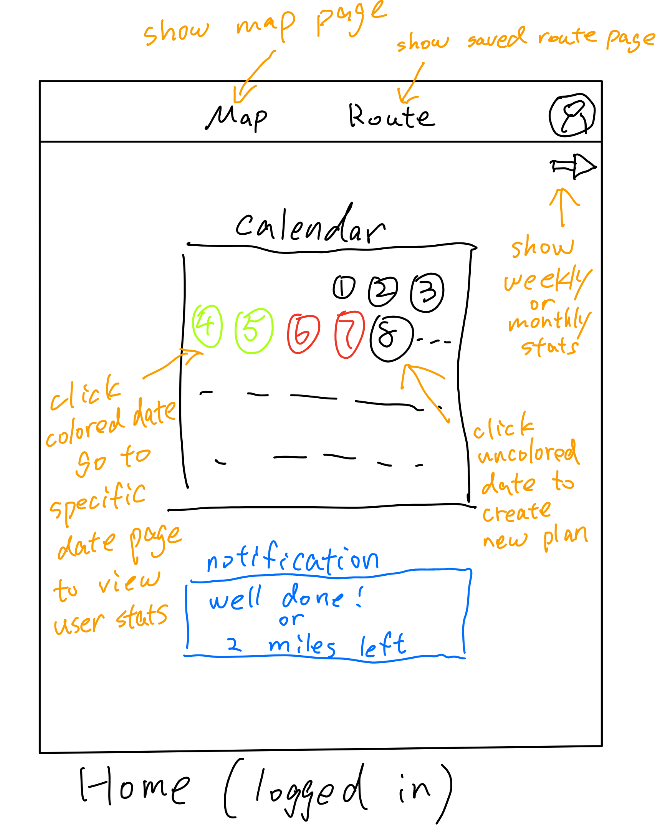 show map page
show saved route page
Map
Route
show
weekly
or
monthly
stats
calendar
1 2 3
4 5 6 7 8 ---
click
colored date
go to
specific
date page
to view
user stats
click
uncolored
date to
create
new plan
notification
well done!
or
2 miles left
Home (logged in)